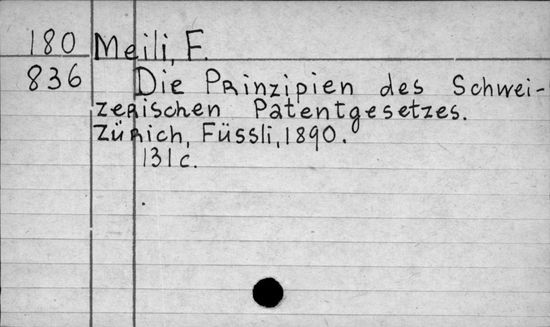 180 Meili, F.
836 Die Prinzipien des Schwei-
zerischen Patentgesetzes.
Zürich, Füssli, 1890.
131 c.